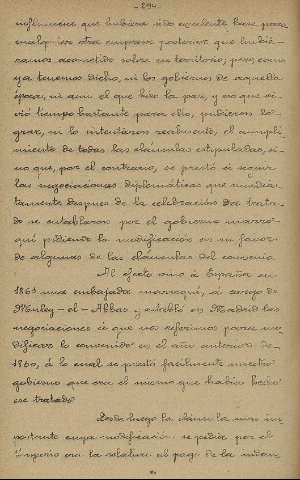 -294-
influencia que hubiera sido excelente base para
cualquier otra empresa posterior que hubié-
ramos acometido sobre su territorio; pero, como
ya tenemos dicho, ni los gobiernos de aquella
época, ni aun el que hizo la paz, y eso que vi-
vió tiempo bastante para ello, pudieron lo-
grar, ni lo intentaron realmente, el cumpli-
miento de todas las cláusulas estipuladas, si-
no que, por el contrario, se prestó a seguir
las negociaciones diplomáticas que inmedia-
tamente despues de la celebración del trata-
do se entablaron por el gobierno marro-
quí pidiente la modificación en su favor
de algunas de las cláusulas del convenio.
Al efecto vino á España en
1861 una embajada marroquí, al cargo de
Muley-el-Abbas y entabló en Madrid las
negociaciones á que nos referimos para mo-
dificar lo convenido en el año anterior de
1860, á lo cual se prestó facilmente nuestro
gobierno que era el mismo que habia hecho
ese tratado.
Desde luego la cláusula mas im-
portante cuya modificación se pedia por el
Imperio era la relativa al pago de la indem-